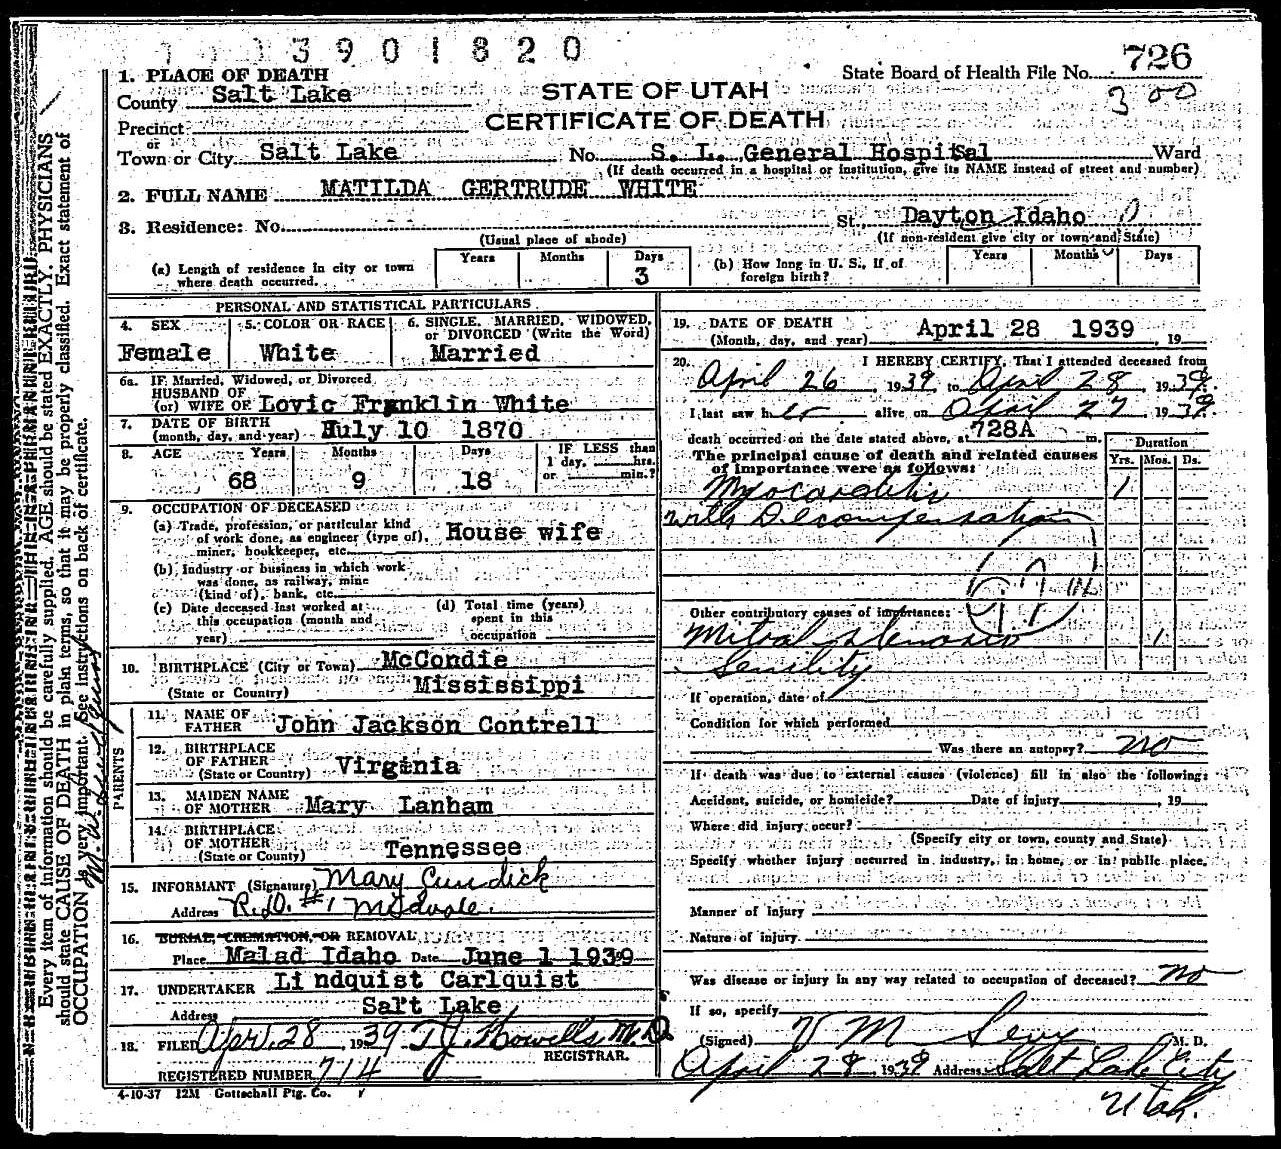 3901820
726
State Board of Health File No.
3 00
1. PLACE OF DEATH
County Salt Lake
STATE OF UTAH
CERTIFICATE OF DEATH
Precinct
or
Town or City Salt Lake No. S. L. General Hospital Ward
(If death occurred in a hospital or institution, give its NAME instead of street and number)
2. FULL NAME MATILDA GERTRUDE WHITE
3. Residence: No. St., Dayton Idaho
(Usual place of abode) (If non-resident give city or town and State)
(a) Length of residence in city or town where death occurred. Years Months Days 3
(b) How long in U. S., if of foreign birth? Years Months Days
PERSONAL AND STATISTICAL PARTICULARS
4. SEX Female
5. COLOR OR RACE White
6. SINGLE, MARRIED, WIDOWED, or DIVORCED (Write the Word) Married
6a. If Married, Widowed, or Divorced
HUSBAND OF
(or) WIFE OF Lovic Franklin White
7. DATE OF BIRTH
(month, day, and year) July 10 1870
8. AGE Years 68 Months 9 Days 18 IF LESS than 1 day, hrs. or min.?
9. OCCUPATION OF DECEASED
(a) Trade, profession, or particular kind of work done, as engineer (type of), miner, bookkeeper, etc. House wife
(b) Industry or business in which work was done, as railway, mine (kind of), bank, etc.
(c) Date deceased last worked at this occupation (month and year)
(d) Total time (years) spent in this occupation
10. BIRTHPLACE (City or Town) McCondie
(State or Country) Mississippi
PARENTS
11. NAME OF FATHER John Jackson Contrell
12. BIRTHPLACE OF FATHER (State or Country) Virginia
13. MAIDEN NAME OF MOTHER Mary Lanham
14. BIRTHPLACE OF MOTHER (State or Country) Tennessee
15. INFORMANT (Signature) Mary Cundick
Address R.D. #1 Midvale.
16. BURIAL, CREMATION, OR REMOVAL
Place Malad Idaho Date June 1 1939
17. UNDERTAKER Lindquist Carlquist
Address Salt Lake
18. FILED Apr. 28, 1939 T J. Howells, M.D.
REGISTRAR.
REGISTERED NUMBER 714
4-10-37 12M Gottschall Ptg. Co.
19. DATE OF DEATH
(Month, day, and year) April 28 1939, 19
20. I HEREBY CERTIFY, That I attended deceased from
April 26, 1939, to April 28, 1939.
I last saw her alive on April 27, 1939.
death occurred on the date stated above, at 728A m.
Duration
Yrs. Mos. Ds.
The principal cause of death and related causes of importance were as follows:
Myocarditis 1
with Decompensation
Other contributory causes of importance:
Mitral stenosis 1
Senility
If operation, date of
Condition for which performed
Was there an autopsy? no
If death was due to external causes (violence) fill in also the following:
Accident, suicide, or homicide? Date of injury , 19
Where did injury occur?
(Specify city or town, county and State)
Specify whether injury occurred in industry, in home, or in public place.
Manner of injury
Nature of injury
Was disease or injury in any way related to occupation of deceased? no
If so, specify
(Signed) V M Sevy M. D.
April 28, 1939 Address Salt Lake City
Utah.
Every item of information should be carefully supplied. AGE should be stated EXACTLY. PHYSICIANS
should state CAUSE OF DEATH in plain terms, so that it may be properly classified. Exact statement of
OCCUPATION is very important. See instructions on back of certificate.